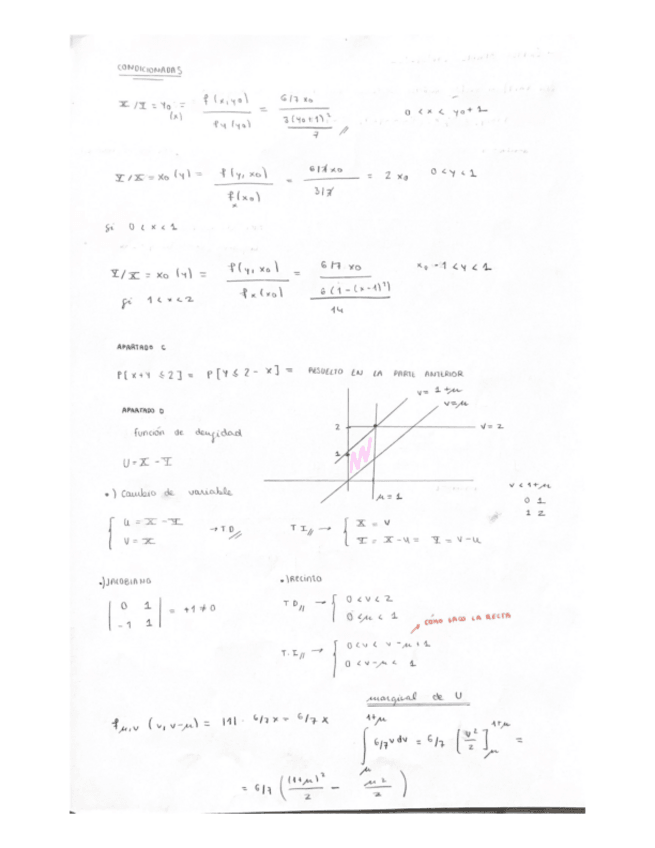 CONDICIONADAS
X/Y = y0 (x) = f(x,y0) / fy(y0) = 6/7 x0 / (3(y0+1)² / 7) 0 < x < y0 + 1
Y/X = x0 (y) = f(y,x0) / fx(x0) = 6/7 x0 / 3/7 = 2 x0 0 < y < 1
Si 0 < x < 1
Y/X = x0 (y) = f(y,x0) / fx(x0) = 6/7 x0 / (6(1-(x-1)²) / 14) x0 - 1 < y < 1
Si 1 < x < 2
APARTADO C
P[x+y ≤ 2] = P[Y ≤ 2 - x] = RESUELTO EN LA PARTE ANTERIOR
APARTADO D
función de densidad
U = X - Y
•) Cambio de variable
{ U = X - Y
V = X
→ TD
v = 1 + μ
v = μ
2
v = 2
1
μ = 1
v < 1+μ
0 1
1 2
TI → { X = V
Y = X - U = Y = V - U
•) JACOBIANO
| 0 1 |
| -1 1 | = +1 ≠ 0
•) Recinto
TD → { 0 < v < 2
0 ≤ μ < 1
CÓMO SACO LA RECTA
T.I → { 0 < v < v - μ + 1
0 < v - μ < 1
marginal de U
fμ,v (v, v-μ) = |1| · 6/7 x = 6/7 x
∫ μ 1+μ 6/7 v dv = 6/7 [v²/2] μ 1+μ =
= 6/7 ( (1+μ)²/2 - μ²/2 )